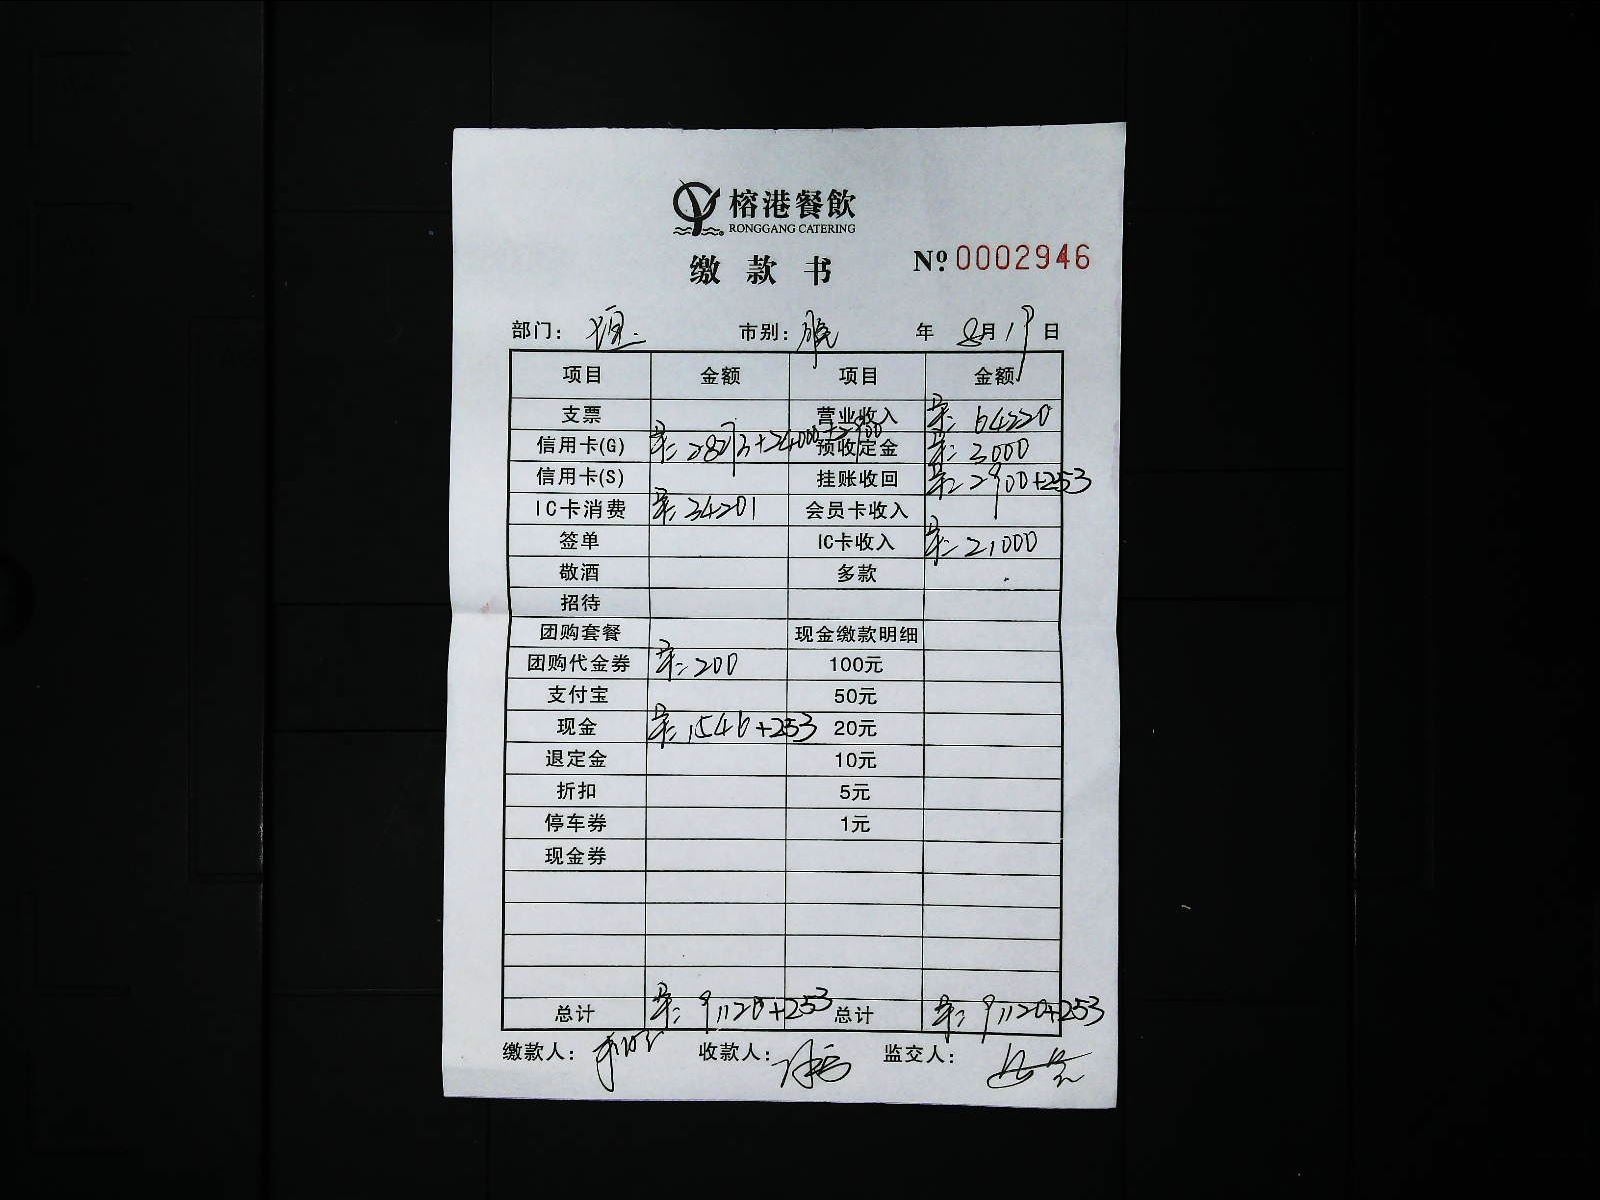 榕港餐飲
RONGGANG CATERING
缴款书 Nº 0002946
部门: 市别: 年 8月19日
项目 金额 项目 金额
支票 营业收入 64220
信用卡(G) 28273+24000+2900 预收定金 3000
信用卡(S) 挂账收回 2900+253
IC卡消费 34201 会员卡收入
签单 IC卡收入 21000
敬酒 多款
招待
团购套餐 现金缴款明细
团购代金券 200 100元
支付宝 50元
现金 1546+253 20元
退定金 10元
折扣 5元
停车券 1元
现金券
总计 91120+253 总计 91120+253
缴款人: 收款人: 监交人: